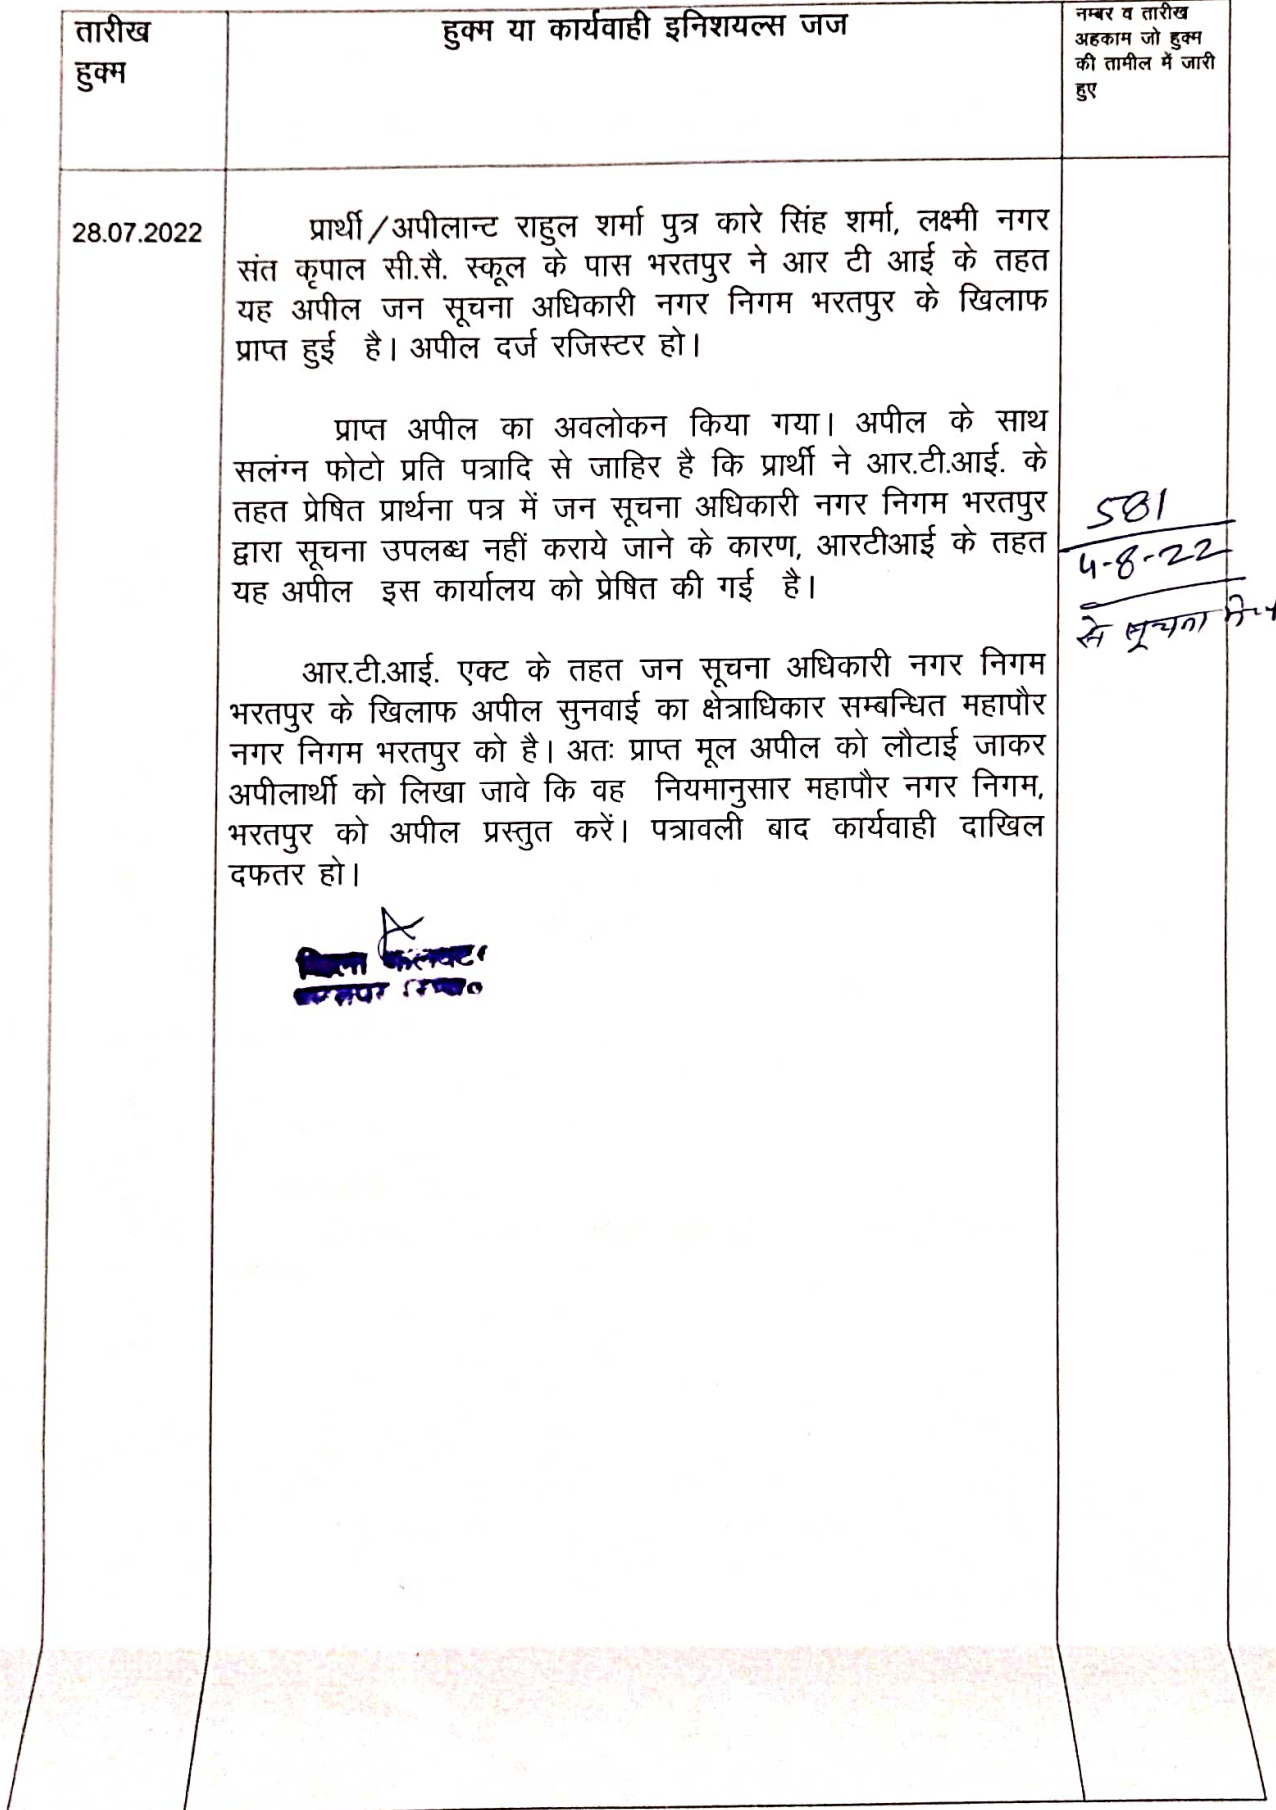 तारीख
हुक्म
हुक्म या कार्यवाही इनिशयल्स जज
नम्बर व तारीख
अहकाम जो हुक्म
की तामील में जारी
हुए
28.07.2022
प्रार्थी/अपीलान्ट राहुल शर्मा पुत्र कारे सिंह शर्मा, लक्ष्मी नगर
संत कृपाल सी.सै. स्कूल के पास भरतपुर ने आर टी आई के तहत
यह अपील जन सूचना अधिकारी नगर निगम भरतपुर के खिलाफ
प्राप्त हुई है। अपील दर्ज रजिस्टर हो।
प्राप्त अपील का अवलोकन किया गया। अपील के साथ
सलंग्न फोटो प्रति पत्रादि से जाहिर है कि प्रार्थी ने आर.टी.आई. के
तहत प्रेषित प्रार्थना पत्र में जन सूचना अधिकारी नगर निगम भरतपुर
द्वारा सूचना उपलब्ध नहीं कराये जाने के कारण, आरटीआई के तहत
यह अपील इस कार्यालय को प्रेषित की गई है।
581
4-8-22
से सूचना
आर.टी.आई. एक्ट के तहत जन सूचना अधिकारी नगर निगम
भरतपुर के खिलाफ अपील सुनवाई का क्षेत्राधिकार सम्बन्धित महापौर
नगर निगम भरतपुर को है। अतः प्राप्त मूल अपील को लौटाई जाकर
अपीलार्थी को लिखा जावे कि वह नियमानुसार महापौर नगर निगम,
भरतपुर को अपील प्रस्तुत करें। पत्रावली बाद कार्यवाही दाखिल
दफतर हो।
जिला कलक्टर